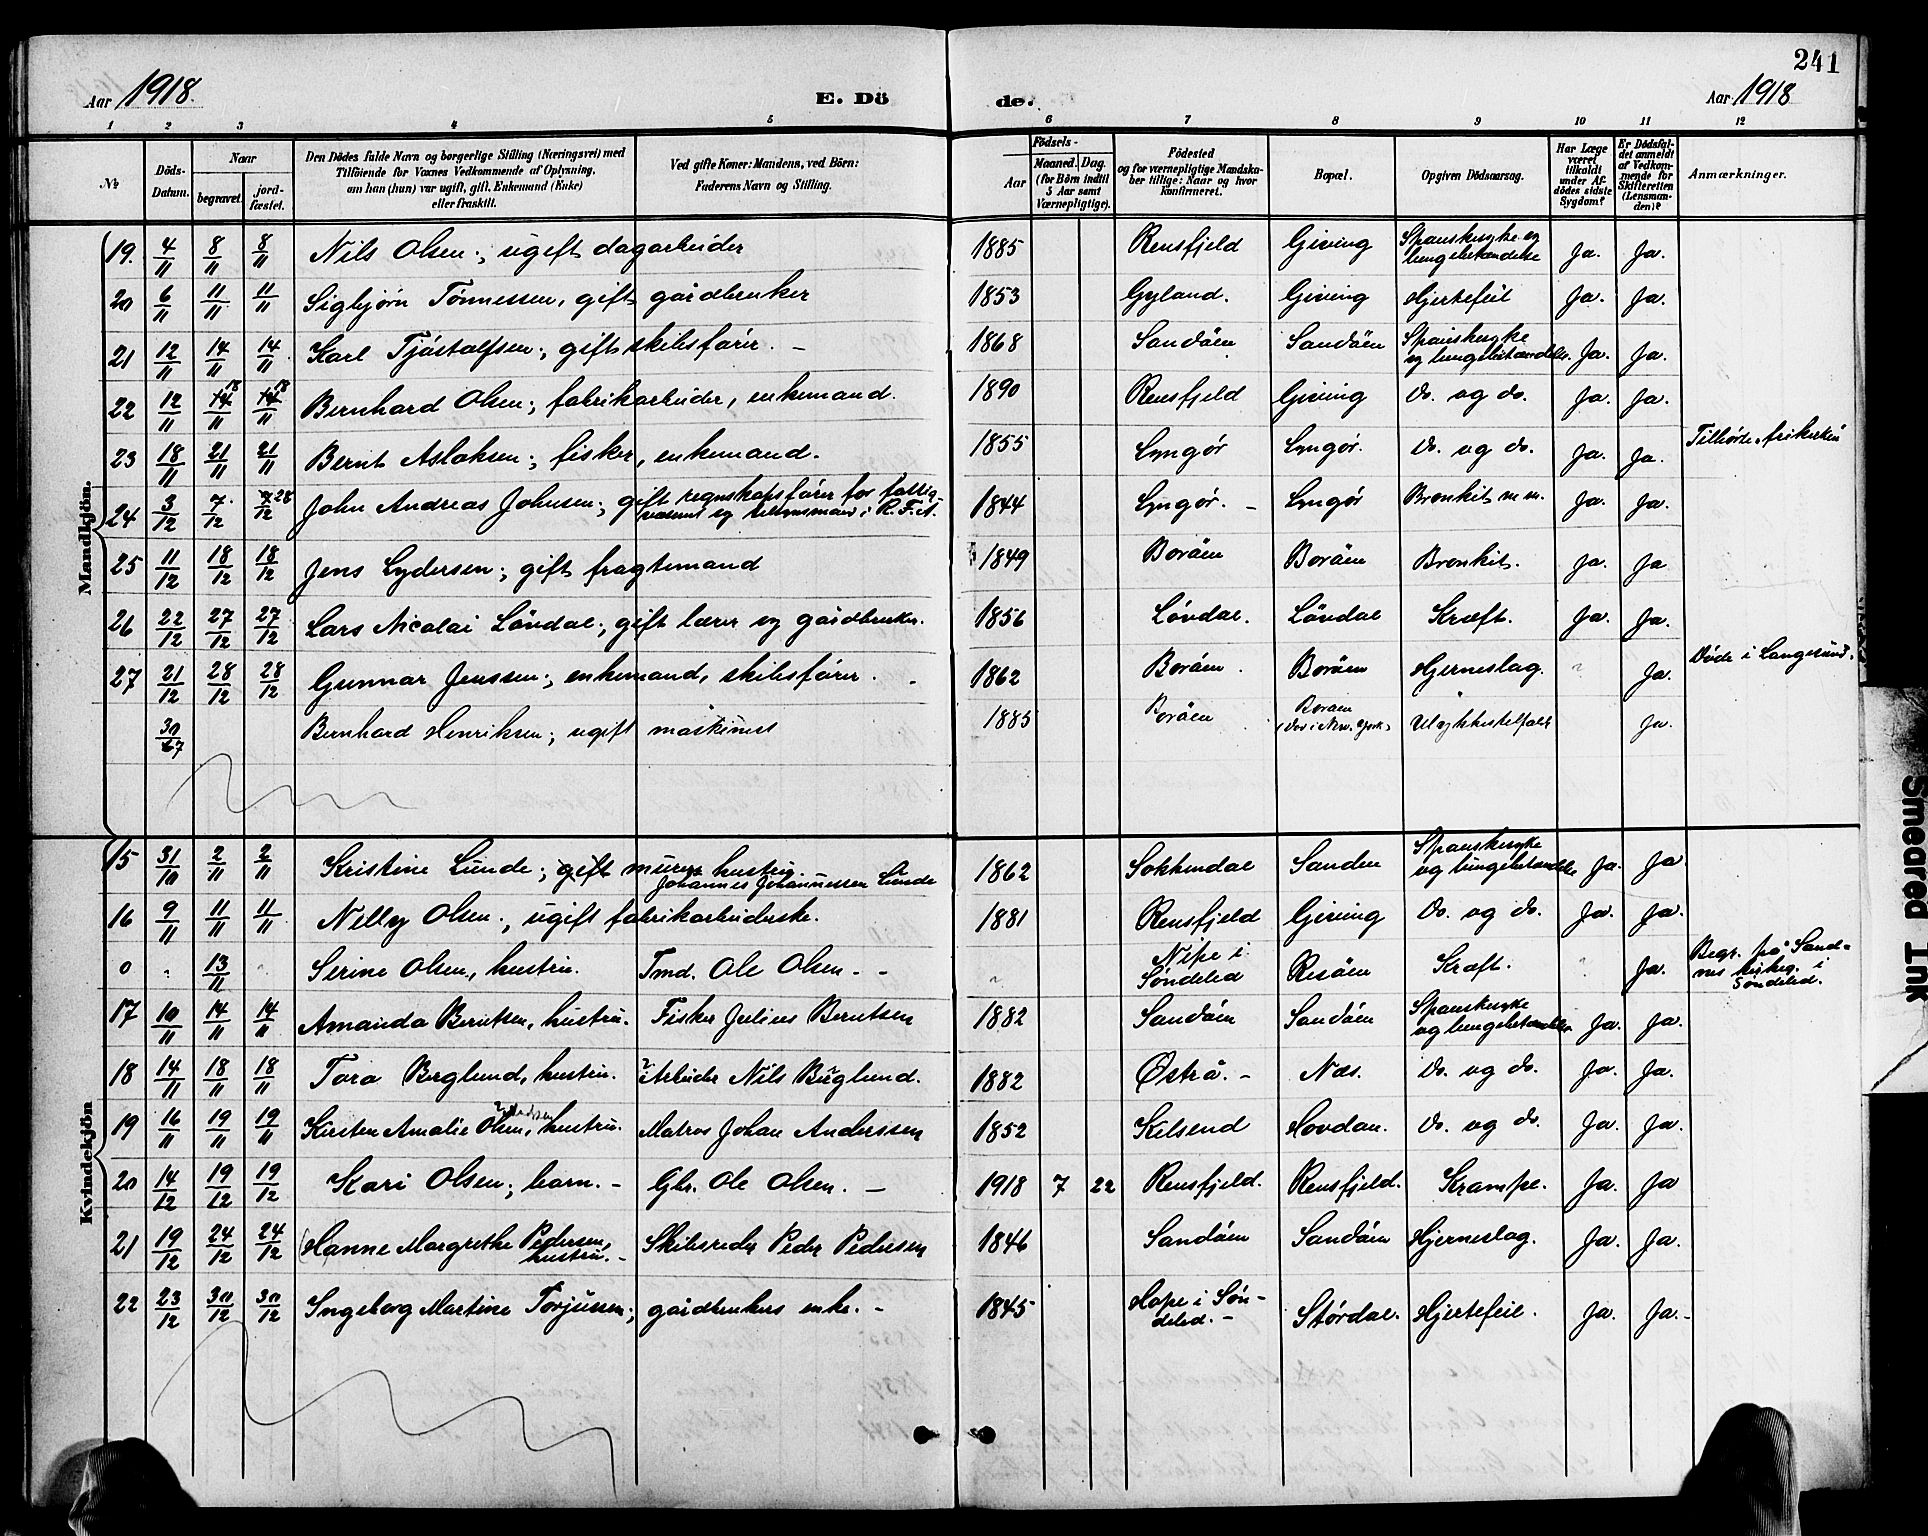 241
Aar 1918. E. Dö de. Aar 1918
1 2 3 4 5 6 7 8 9 10 11 12
№ Döds-Datum. Naar begravet. jord-fæstet. Den Dödes fulde Navn og borgerlige Stilling (Næringsvei) med Tilföiende for Voxnes Vedkommende af Oplysning, om han (hun) var ugift, gift, Enkemand (Enke) eller fraskilt. Ved gifte Koner: Mandens, ved Börn: Faderens Navn og Stilling. Födsels- Aar Maaned. Dag. (for Börn indtil 5 Aar samt Værnepligtige). Födested og for værnepligtige Mandskaber tillige: Naar og hvor konfirmeret. Bopæl. Opgiven Dödsaarsag. Har Læge været tilkaldt under Afdödes sidste Sygdom? Er Dödsfaldet anmeldt af Vedkommende for Skifteretten (Lensmanden)? Anmærkninger.
Mandkjön.
19. 4/11 8/11 8/11 Nils Olsen; ugift dagarbeider 1885 Rensfjeld Giving Spanskesyke og lungebetændelse Ja. Ja.
20 6/11 11/11 11/11 Sigbjørn Tønnessen, gift gårdbruker 1853 Gyland. Giving Hjertefeil Ja. Ja.
21 12/11 14/11 14/11 Karl Tjöstalfsen; gift skibsfører. – 1868 Sandøen Sandøen Spanskesyke og lungebetændelse. Ja. Ja.
22 12/11 18/11 18/11 Bernhard Olsen; fabrikarbeider, enkemand. 1890 Rensfjeld Giving Do. og do. Ja. Ja.
23 18/11 21/11 21/11 Bernt Aslaksen; fisker, enkemand. 1855 Lyngör Lyngör. Do. og do. Ja. Ja. Tilhörte frikirken
24 3/12 7/12 28/12 John Andreas Johnsen; gift regnskapsfører for fattigvæsenet og 1844 Lyngör. – Lyngör Bronkit m m. Ja. Ja.
25 11/12 18/12 18/12 Jens Lydersen; gift fragtemand 1849 Borøen Borøen Bronkit. Ja. Ja
26 22/12 27/12 27/12 Lars Nicolai Lövdal; gift lærer og gårdbruker. 1856 Lövdal. Lövdal Kræft. Ja. Ja.
27 21/12 28/12 28/12 Gunnar Jenssen; enkemand, skibsfører. – 1862 Borøen. Borøen Hjerneslag. " Ja. Döde i Langesund.
30/7 Bernhard Henriksen; ugift maskinist 1885 Borøen Borøen (Dør i New York) Ulykkestelfalt Ja.
Kvindekjön
15 31/10 2/11 2/11 Kristine Lunde; gift murer hustru. Johannes Johannessen Lunde 1862 Sokkendal Sanden Spanskesyke og lungebetændelse Ja. Ja
16 9/11 11/11 11/11 Nelly Olsen; ugift fabrikarbeiderske. 1881 Rensfjeld Giving Do. og do. Ja. Ja.
0 " 13/11 " Serine Olsen, hustru. Tmd. Ole Olsen – – " Nipe i Söndeled Risøen Kræft. " Ja. Begr. på Sandnes kirkeg. i Söndeled.
17 10/11 14/11 14/11 Amanda Berntsen, hustru. Fisker Julius Berntsen 1882 Sandøen Sandøen Spanskesyke og lungebetændelse Ja. Ja.
18 14/11 18/11 18/11 Tora Berglund, hustru. Arbeider Nils Berglund. 1882 Østrå. – Næs. Do. og do. Ja. Ja.
19 16/11 19/11 19/11 Kirsten Amalie Olsen, hustru. Matros Johan Anderssen 1852 Kilsend Hovdan. Do. og do. Ja. Ja.
20 14/12 19/12 19/12 Kari Olsen; barn. – Gbr. Ole Olsen. – 1918 7 22 Rensfjeld. Rensfjeld. Krampe. Ja. Ja
21 19/12 24/12 24/12 Hanne Margrethe Pedersen, hustru. – Skibsreder Peder Pedersen 1846 Sandøen Sandøen Hjerneslag. Ja. Ja.
22 23/12 30/12 30/12 Ingeborg Martine Torjussen; gårdbrukers enke. – 1845 Hope i Söndeled. – Stördal. Hjertefeil. Ja. Ja. –
Smeared Ink